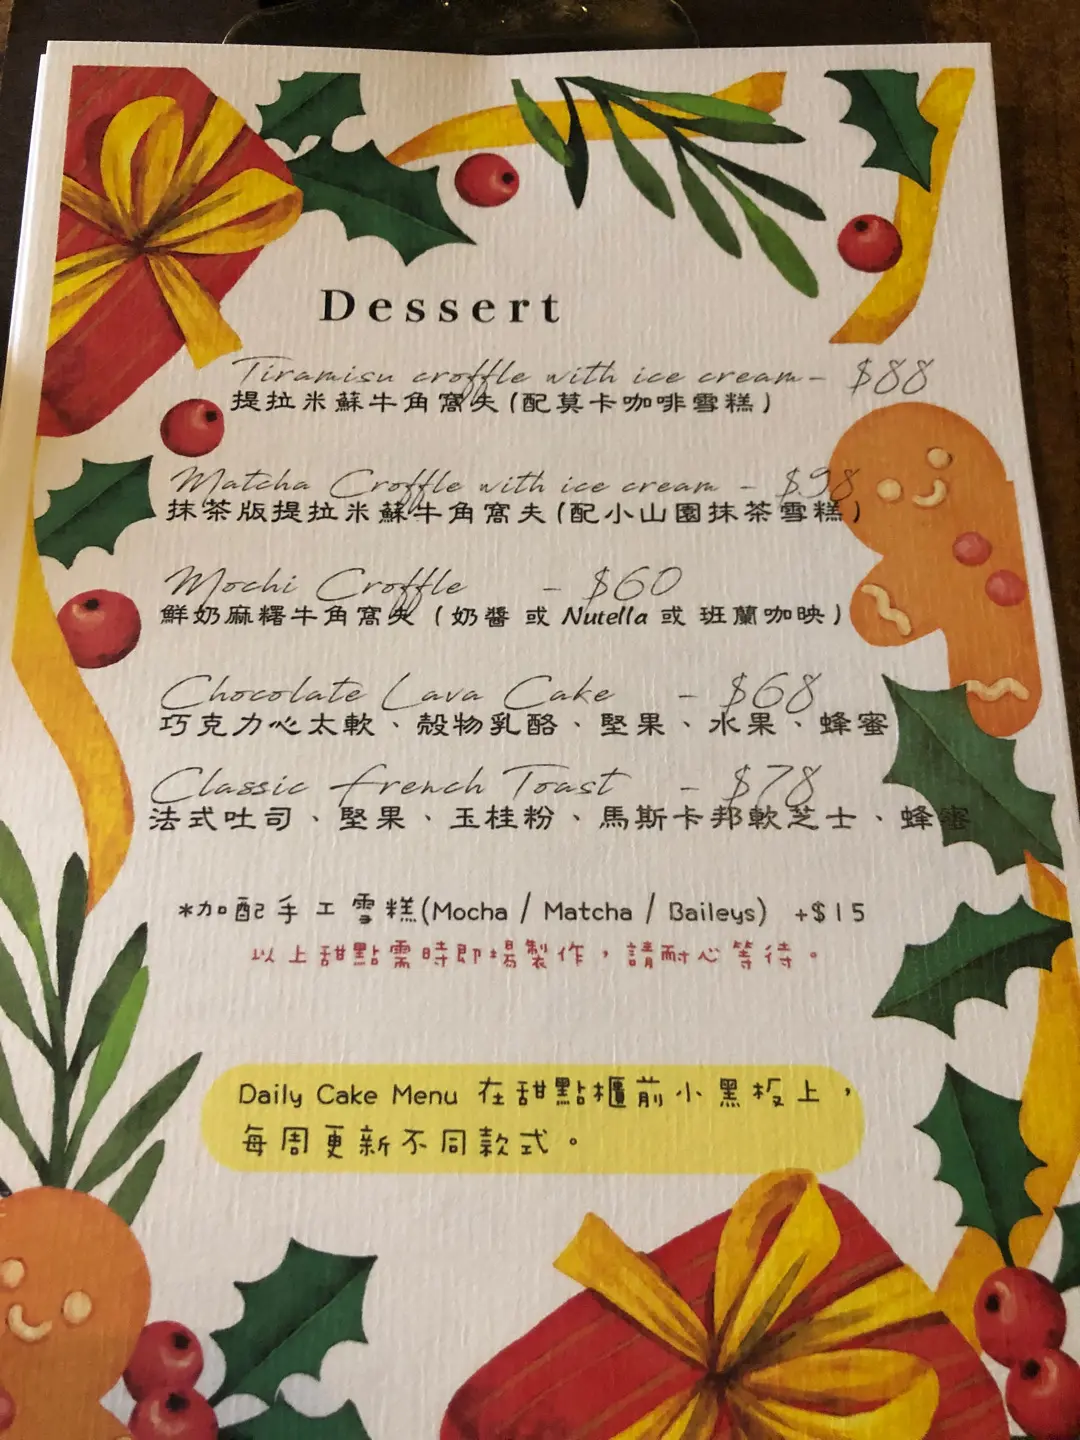 Dessert
Tiramisu croffle with ice cream- $88
提拉米蘇牛角窩夫(配莫卡咖啡雪糕)
Matcha Croffle with ice cream - $98
抹茶版提拉米蘇牛角窩夫(配小山園抹茶雪糕)
Mochi Croffle - $60
鮮奶麻糬牛角窩夫 (奶醬 或 Nutella 或 班蘭咖映)
Chocolate Lava Cake - $68
巧克力心太軟、殼物乳酪、堅果、水果、蜂蜜
Classic French Toast - $78
法式吐司、堅果、玉桂粉、馬斯卡邦軟芝士、蜂蜜
*加配手工雪糕(Mocha / Matcha / Baileys) +$15
以上甜點需時即場製作，請耐心等待。
Daily Cake Menu 在甜點櫃前小黑板上，
每周更新不同款式。